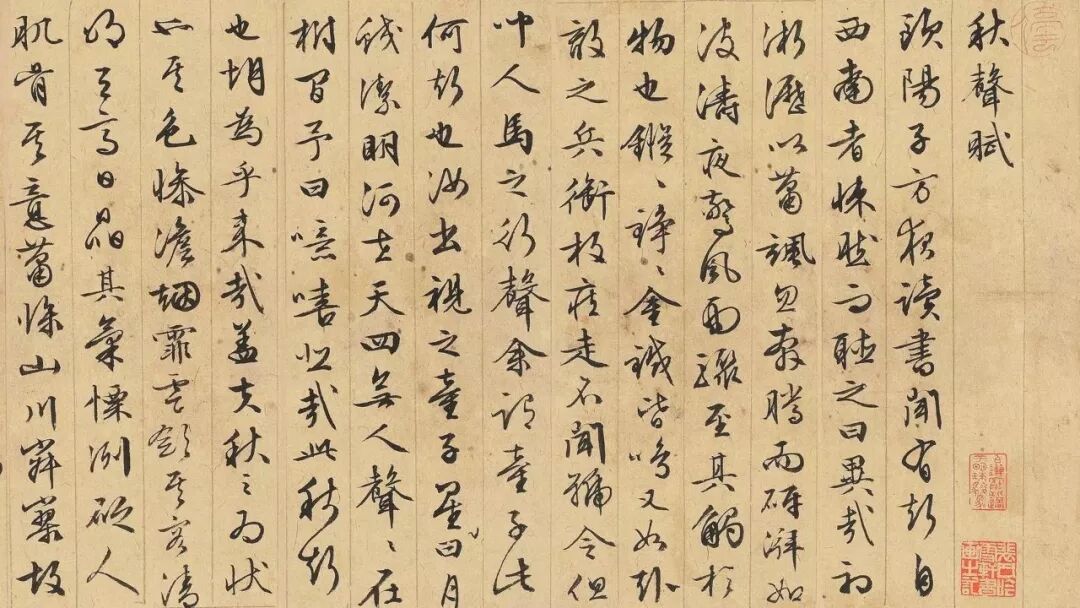 秋聲賦
歐陽子方夜讀書聞有聲自
西南者悚然而聽之曰異哉初
淅瀝以蕭颯忽奔騰而砰湃如
波濤夜驚風雨驟至其觸於
物也鏦〻錚〻金鐵皆鳴又如赴
敵之兵銜枚疾走不聞號令但
聞人馬之行聲余謂童子此
何聲也汝出視之童子星曰月
皎潔明河在天四無人聲〻在
樹間予曰噫嘻悲哉此秋聲
也胡為乎来哉蓋夫秋之為狀
也其色慘澹烟霏雲斂其容清
明天高日晶其氣慄冽砭人
肌骨其意蕭條山川寂寥故